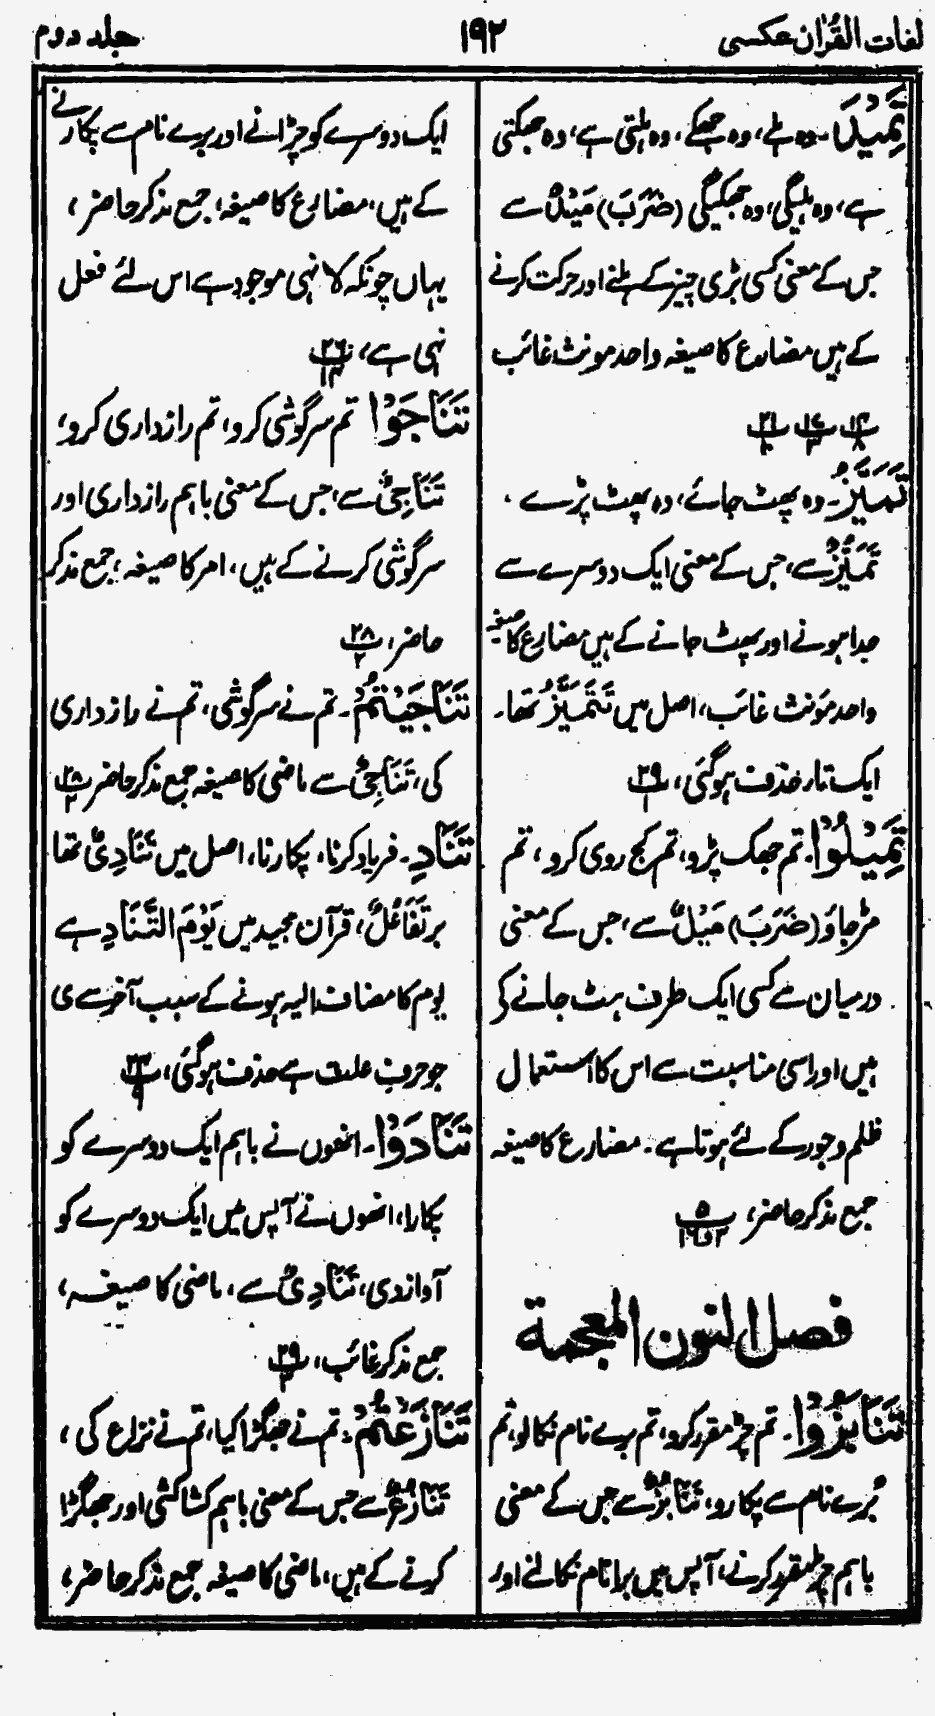 لغات القرآن عکسی
۱۹۲
جلد دوم
تَمِیْدَ۔ وہ ہلے، وہ جھکے، وہ ہلتی ہے، وہ جھکتی
ہے، وہ ہلیگی، وہ جھکیگی (ضَرَبَ) مَیْدٌ سے
جس کے معنی کسی بڑی چیز کے ہلنے اور حرکت کرنے
کے ہیں مضارع کا صیغہ واحد مونث غائب
۱۴/۸ ۱۷/۳ ۲۱/۱۰
تَمَیَّزُ۔ وہ پھٹ جائے، وہ پھٹ پڑے۔
تَمَیُّزٌ سے، جس کے معنی ایک دوسرے سے
جدا ہونے اور پھٹ جانے کے ہیں مضارع کا صیغہ
واحد مونث غائب، اصل میں تَتَمَیَّزُ تھا۔
ایک تار حذف ہوگئی، ۲۹/۱
تَمِیْلُوْا۔ تم جھک پڑو، تم کج روی کرو، تم
مڑ جاؤ (ضَرَبَ) مَیْلٌ سے، جس کے معنی
درمیان سے کسی ایک طرف ہٹ جانے کے
ہیں اور اسی مناسبت سے اس کا استعمال
ظلم وجور کے لئے ہوتا ہے۔ مضارع کا صیغہ
جمع مذکر حاضر، ۵/۲و۱۶
فصل النون المعجمة
تَنَابَزُوْا۔ تم چڑ مقرر کرو، تم برے نام نکالو، تم
بُرے نام سے پکارو، تَنَابُزٌ سے جس کے معنی
باہم چڑ مقرر کرنے، آپس میں برا نام نکالنے اور
ایک دوسرے کو چڑانے اور برے نام سے پکارنے
کے ہیں، مضارع کا صیغہ، جمع مذکر حاضر،
یہاں چونکہ لا نہی موجود ہے اس لئے فعل
نہی ہے، ۲۶/۱۴
تَنَاجَوْا تم سرگوشی کرو، تم رازداری کرو،
تَنَاجِیْ سے، جس کے معنی باہم رازداری اور
سرگوشی کرنے کے ہیں، امر کا صیغہ، جمع مذکر
حاضر، ۲۸/۲
تَنَاجَیْتُمْ۔ تم نے سرگوشی، تم نے رازداری
کی، تَنَاجِیْ سے ماضی کا صیغہ جمع مذکر حاضر ۲۸/۲
تَنَادِ۔ فریاد کرنا، پکارنا، اصل میں تَنَادِیْ تھا
بر تَفَاعُلٌ، قرآن مجید میں یَوْمَ التَّنَادِ ہے
یوم کا مضاف الیہ ہونے کے سبب آخر سے ی
جو حرف علت ہے حذف ہوگئی، ۲۴/۹
تَنَادَوْا۔ انھوں نے باہم ایک دوسرے کو
پکارا، انھوں نے آپس میں ایک دوسرے کو
آواز دی، تَنَادِیْ سے، ماضی کا صیغہ،
جمع مذکر غائب، ۲۹/۳
تَنَازَعْتُمْ۔ تم نے جھگڑا کیا، تم نے نزاع کی،
تَنَازُعٌ سے جس کے معنی باہم کشاکشی اور جھگڑا
کرنے کے ہیں، ماضی کا صیغہ جمع مذکر حاضر،